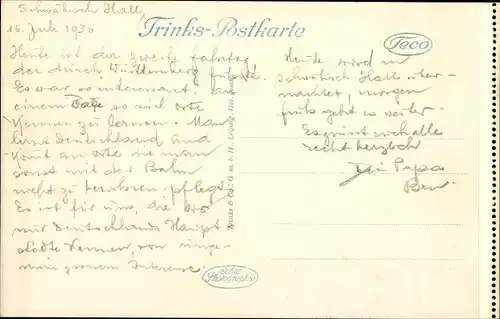 Schwäbisch Hall,
16. Juli 1930
Trinks-Postkarte
Teco
Heute ist der zweite Fahrtag
der durch Württemberg führt.
Es war so interessant, an
einem Tage so viel Orte
kennen zu lernen. Man
lernt Deutschland und
kommt an Orte die man
sonst mit der Bahn
nicht zu berühren pflegt.
Es ist für uns, die wir
nur Deutschlands Haupt
städte kennen, von unge-
mein grossem Interesse
Heute wird in
Schwäbisch Hall über-
nachtet, morgen
früh geht es weiter.
Es grüsst euch alle
recht herzlich
Dein Papa
Ben.
Trinks & Co., G. m. b. H., Leipzig
Echte Photographie